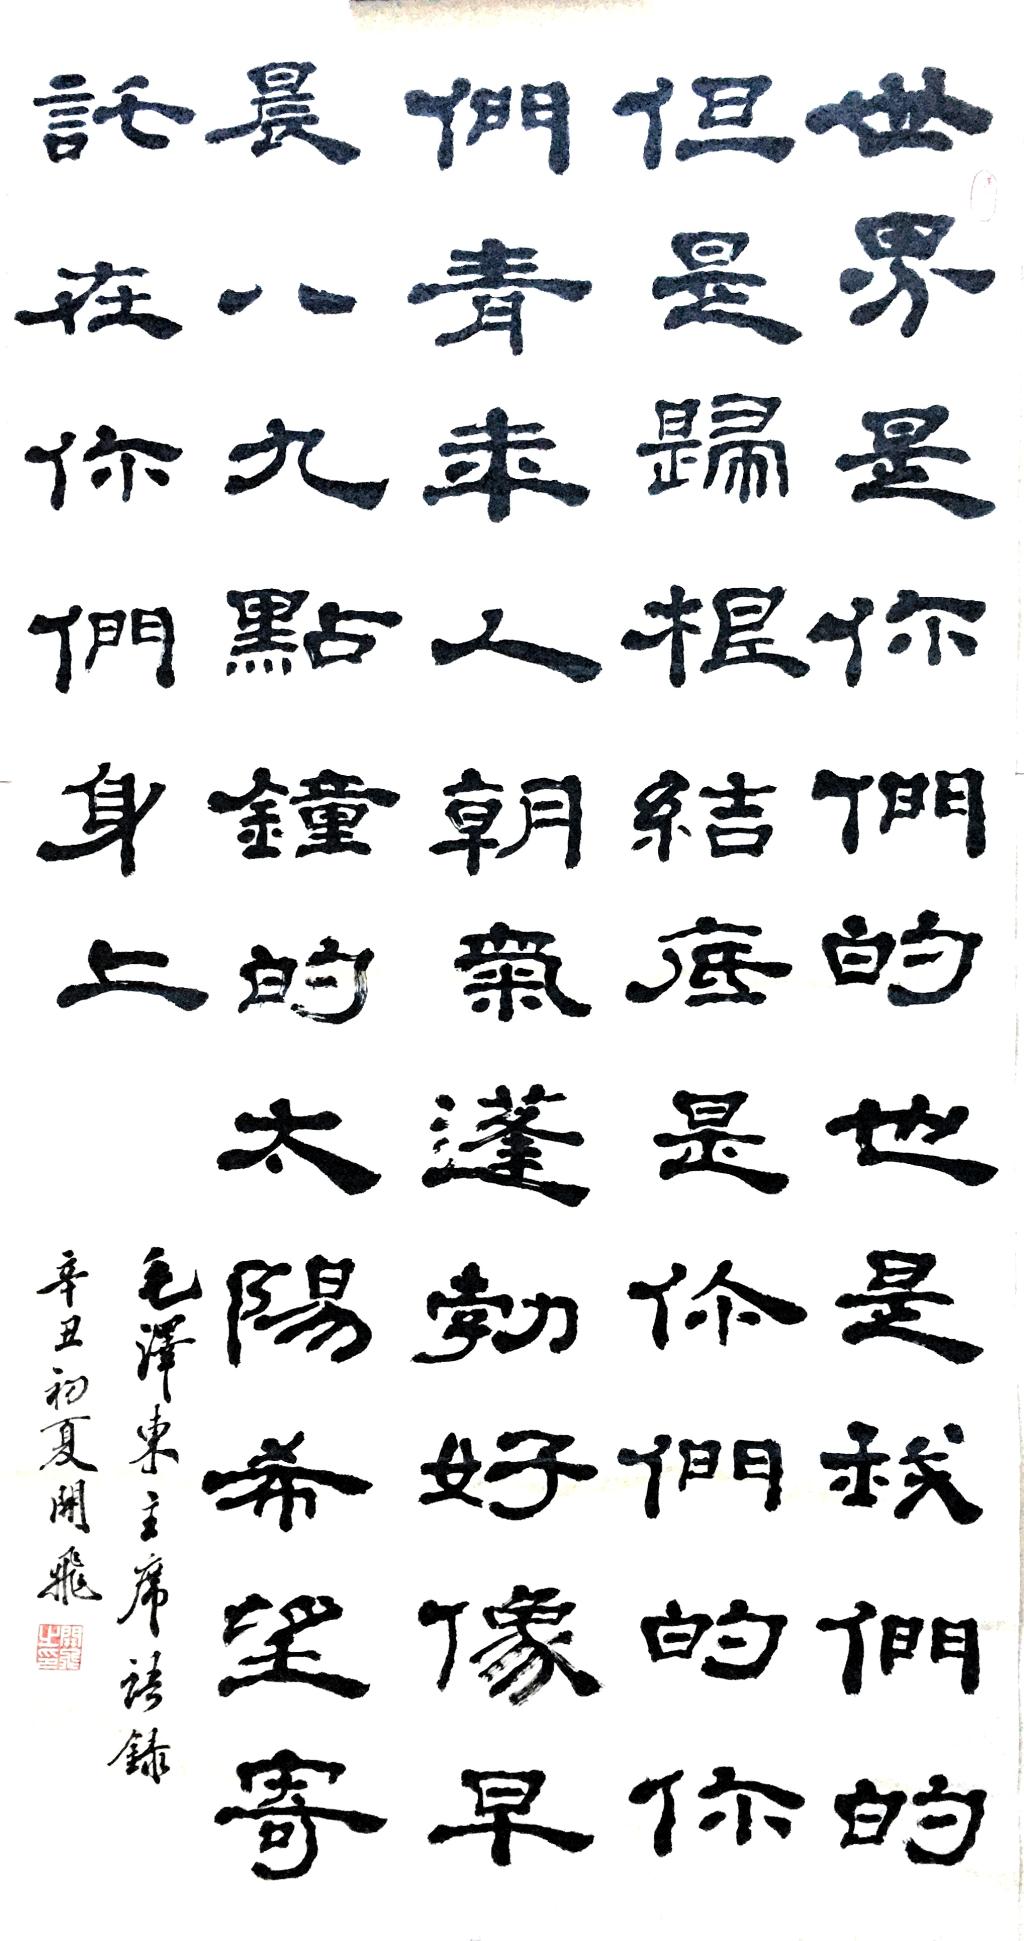 世界是你們的也是我們的
但是歸根結底是你們的你
們青年人朝氣蓬勃好像早
晨八九點鐘的太陽希望寄
託在你們身上
毛澤東主席語錄
辛丑初夏開飛